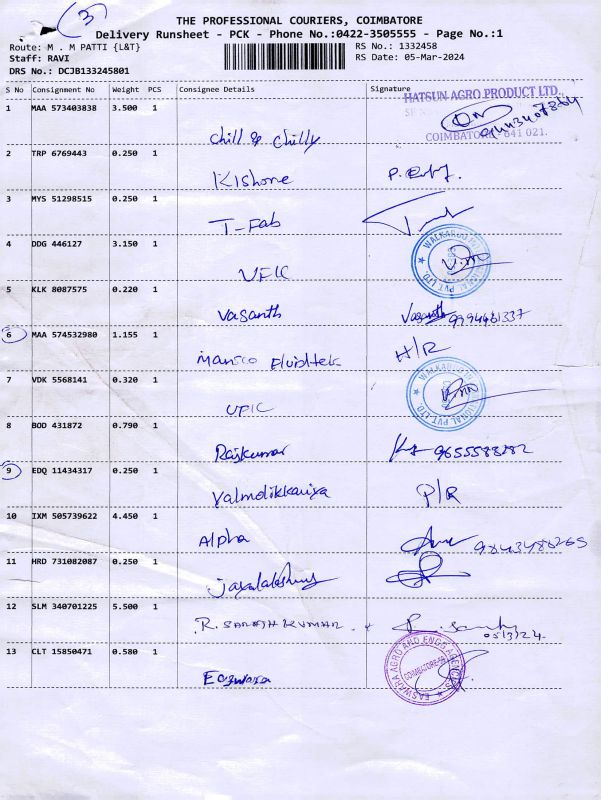 3
THE PROFESSIONAL COURIERS, COIMBATORE
Delivery Runsheet - PCK - Phone No.:0422-3505555 - Page No.:1
Route: M . M PATTI {L&T}
RS No.: 1332458
Staff: RAVI
RS Date: 05-Mar-2024
DRS No.: DCJB133245801
S No Consignment No Weight PCS Consignee Details Signature
HATSUN AGRO PRODUCT LTD.
1 MAA 573403838 3.500 1
COIMBATORE - 641 021.
Chill & Chilly
2 TRP 6769443 0.250 1
Kishore
3 MYS 51298515 0.250 1
T-Fab
4 DDG 446127 3.150 1
WALKAROO INTERNATIONAL PVT. LTD.
VFIC
5 KLK 8087575 0.220 1
Vasanth Vasanth 9994461337
6 MAA 574532980 1.155 1
H/R
7 VDK 5568141 0.320 1
WALKAROO INTERNATIONAL PVT. LTD.
8 BOD 431872 0.790 1
Rajkumar
9 EDQ 11434317 0.250 1
P/R
10 IXM 505739622 4.450 1
Alpha
11 HRD 731082087 0.250 1
12 SLM 340701225 5.500 1
05/3/24
13 CLT 15850471 0.580 1
EASWARA AGRO AND ENGG AGENCIES
COIMBATORE